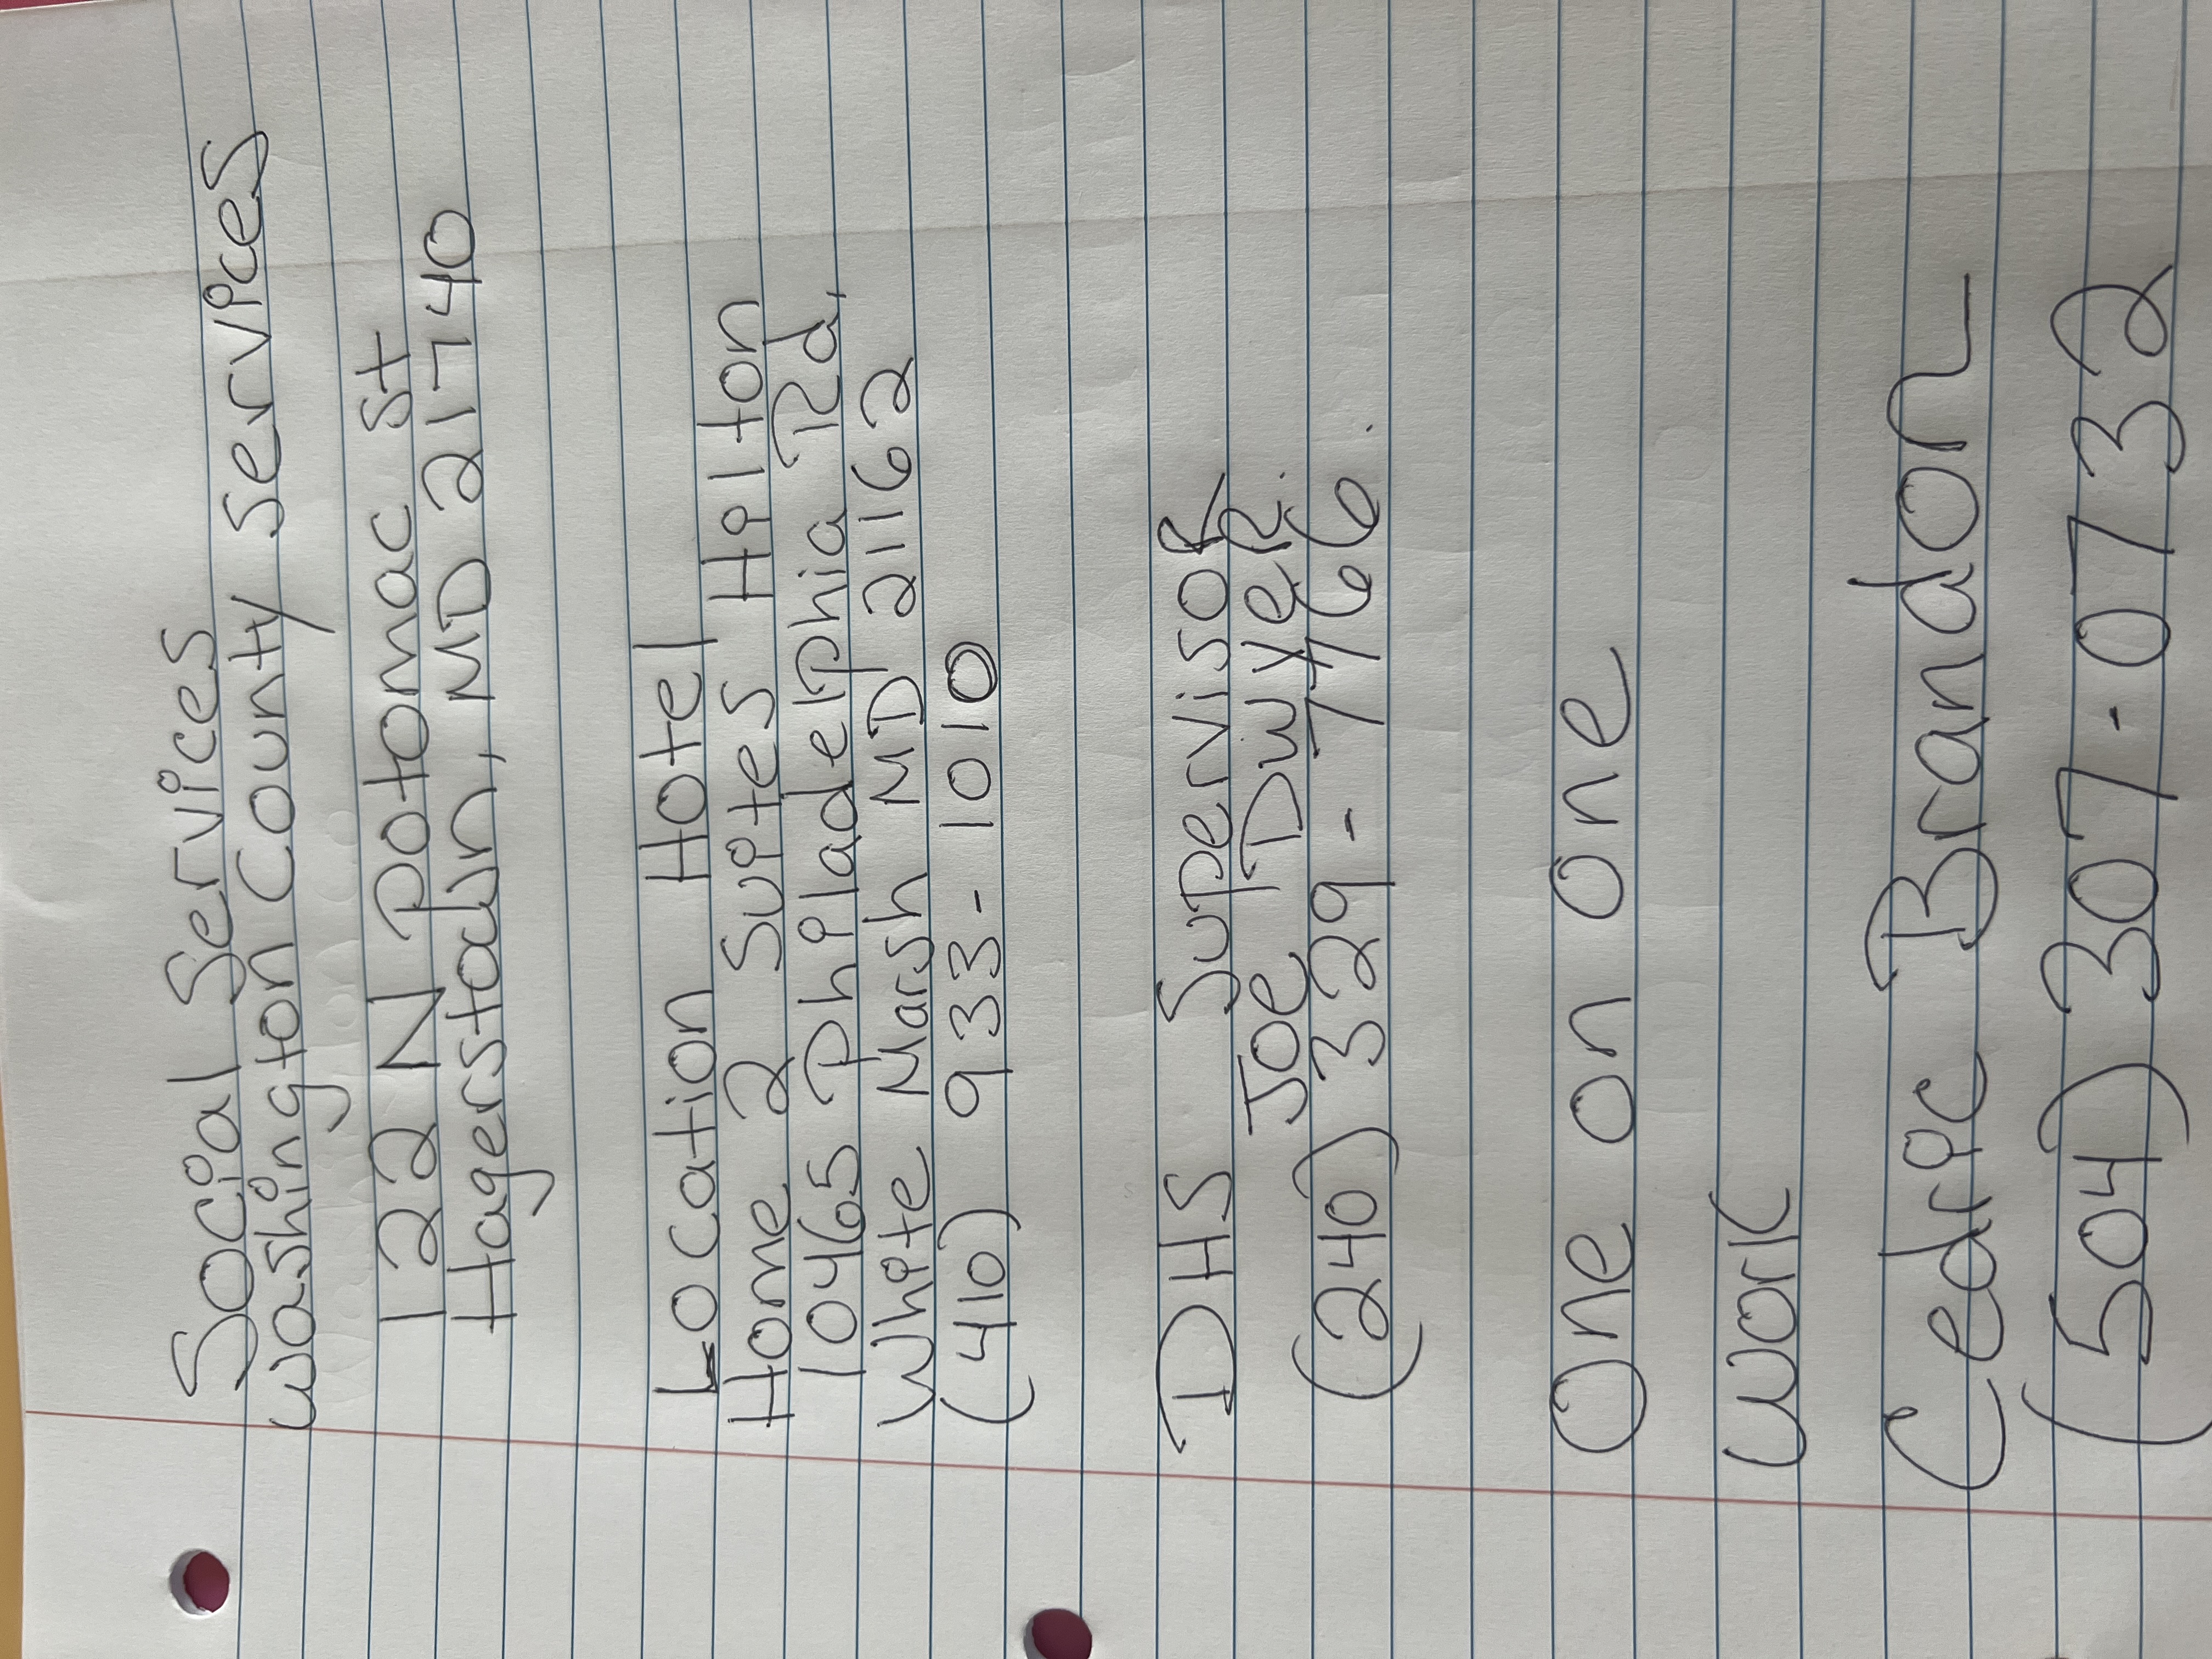 Social Services
Washington County Services
122 N Potomac St
Hagerstown, MD 21740
Location Hotel
Home 2 Suites Hilton
10465 Philadelphia Rd,
White Marsh MD 21162
(410) 933-1010
DHS Supervisor
Joe Dwyer.
(240) 329-7466.
One on one
work
Cedric Brandon
(504) 307-0732